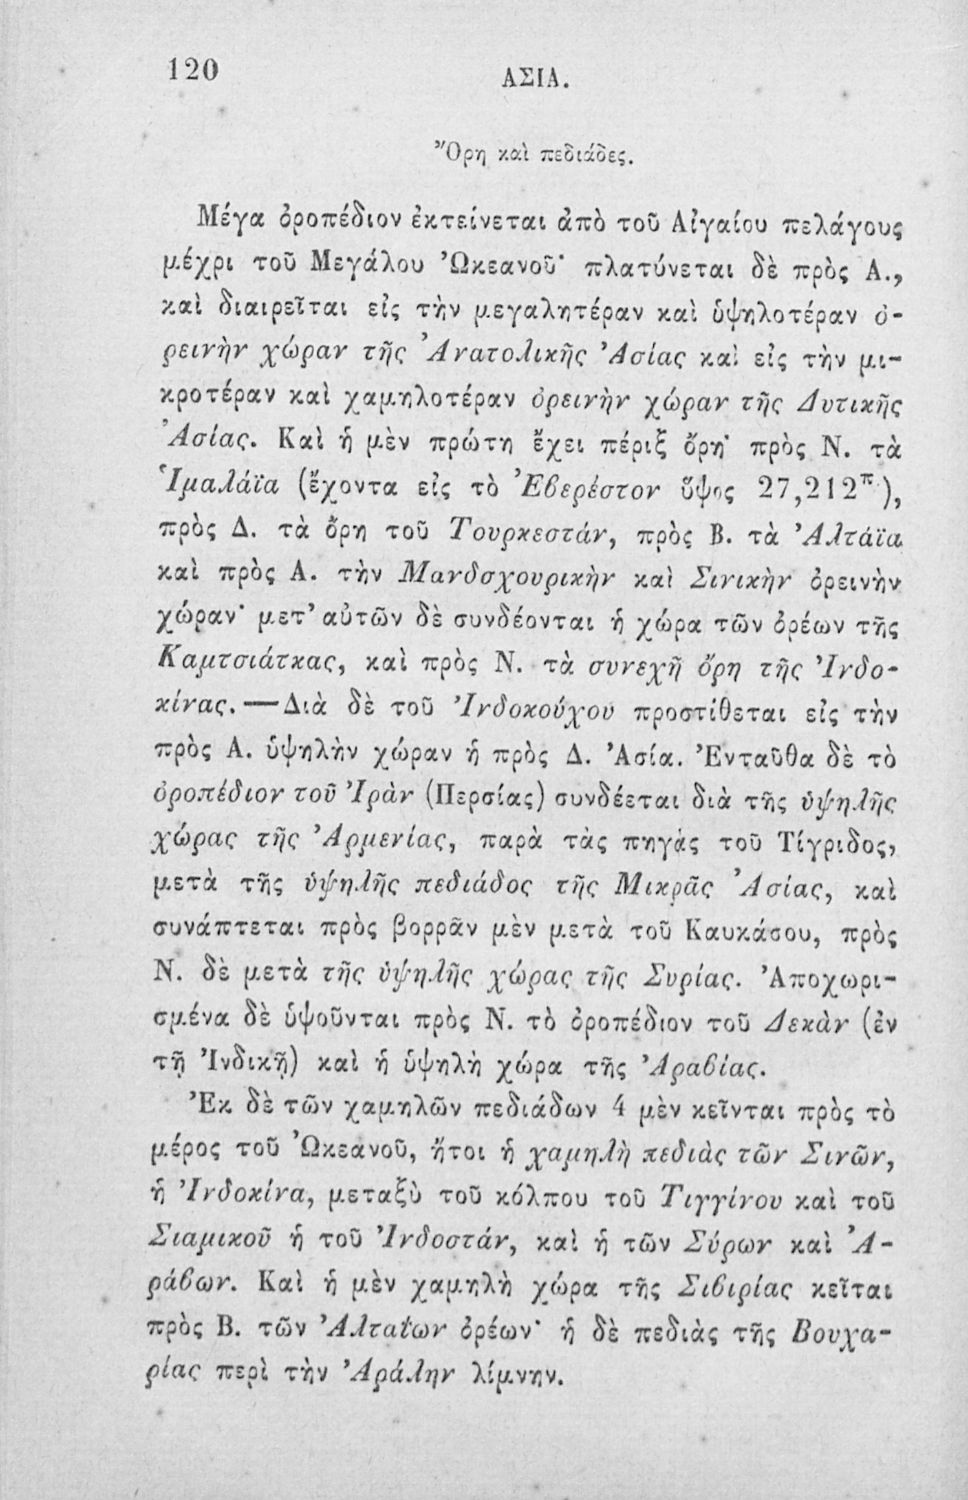 120
ΑΣΙΑ.
Ὄρη καὶ πεδιάδες.
Μέγα ὀροπέδιον ἐκτείνεται ἀπὸ τοῦ Αἰγαίου πελάγους
μέχρι τοῦ Μεγάλου Ὠκεανοῦ· πλατύνεται δὲ πρὸς Α.,
καὶ διαιρεῖται εἰς τὴν μεγαλητέραν καὶ ὑψηλοτέραν ὀ-
ρεινὴν χώραν τῆς Ἀνατολικῆς Ἀσίας καὶ εἰς τὴν μι-
κροτέραν καὶ χαμηλοτέραν ὀρεινὴν χώραν τῆς Δυτικῆς
Ἀσίας. Καὶ ἡ μὲν πρώτη ἔχει πέριξ ὄρη· πρὸς Ν. τὰ
Ἱμαλάϊα (ἔχοντα εἰς τὸ Ἐβερέστον ὕψος 27,212π),
πρὸς Δ. τὰ ὄρη τοῦ Τουρκεστάν, πρὸς Β. τὰ Ἀλτάϊα
καὶ πρὸς Α. τὴν Μανδσχουρικὴν καὶ Σινικὴν ὀρεινὴν
χώραν· μετ' αὐτῶν δὲ συνδέονται ἡ χώρα τῶν ὀρέων τῆς
Καμτσιάτκας, καὶ πρὸς Ν. τὰ συνεχῆ ὄρη τῆς Ἰνδο-
κίνας.—Διὰ δὲ τοῦ Ἰνδοκούχου προστίθεται εἰς τὴν
πρὸς Α. ὑψηλὴν χώραν ἡ πρὸς Δ. Ἀσία. Ἐνταῦθα δὲ τὸ
ὀροπέδιον τοῦ Ἰρὰν (Περσίας) συνδέεται διὰ τῆς ὑψηλῆς
χώρας τῆς Ἀρμενίας, παρὰ τὰς πηγὰς τοῦ Τίγριδος,
μετὰ τῆς ὑψηλῆς πεδιάδος τῆς Μικρᾶς Ἀσίας, καὶ
συνάπτεται πρὸς βορρᾶν μὲν μετὰ τοῦ Καυκάσου, πρὸς
Ν. δὲ μετὰ τῆς ὑψηλῆς χώρας τῆς Συρίας. Ἀποχωρι-
σμένα δὲ ὑψοῦνται πρὸς Ν. τὸ ὀροπέδιον τοῦ Δεκὰν (ἐν
τῇ Ἰνδικῇ) καὶ ἡ ὑψηλὴ χώρα τῆς Ἀραβίας.
Ἐκ δὲ τῶν χαμηλῶν πεδιάδων 4 μὲν κεῖνται πρὸς τὸ
μέρος τοῦ Ὠκεανοῦ, ἤτοι ἡ χαμηλὴ πεδιὰς τῶν Σινῶν,
ἡ Ἰνδοκίνα, μεταξὺ τοῦ κόλπου τοῦ Τιγγίνου καὶ τοῦ
Σιαμικοῦ ἡ τοῦ Ἰνδοστάν, καὶ ἡ τῶν Σύρων καὶ Ἀ-
ράβων. Καὶ ἡ μὲν χαμηλὴ χώρα τῆς Σιβιρίας κεῖται
πρὸς Β. τῶν Ἀλταΐων ὀρέων· ἡ δὲ πεδιὰς τῆς Βουχα-
ρίας περὶ τὴν Ἀράλην λίμνην.